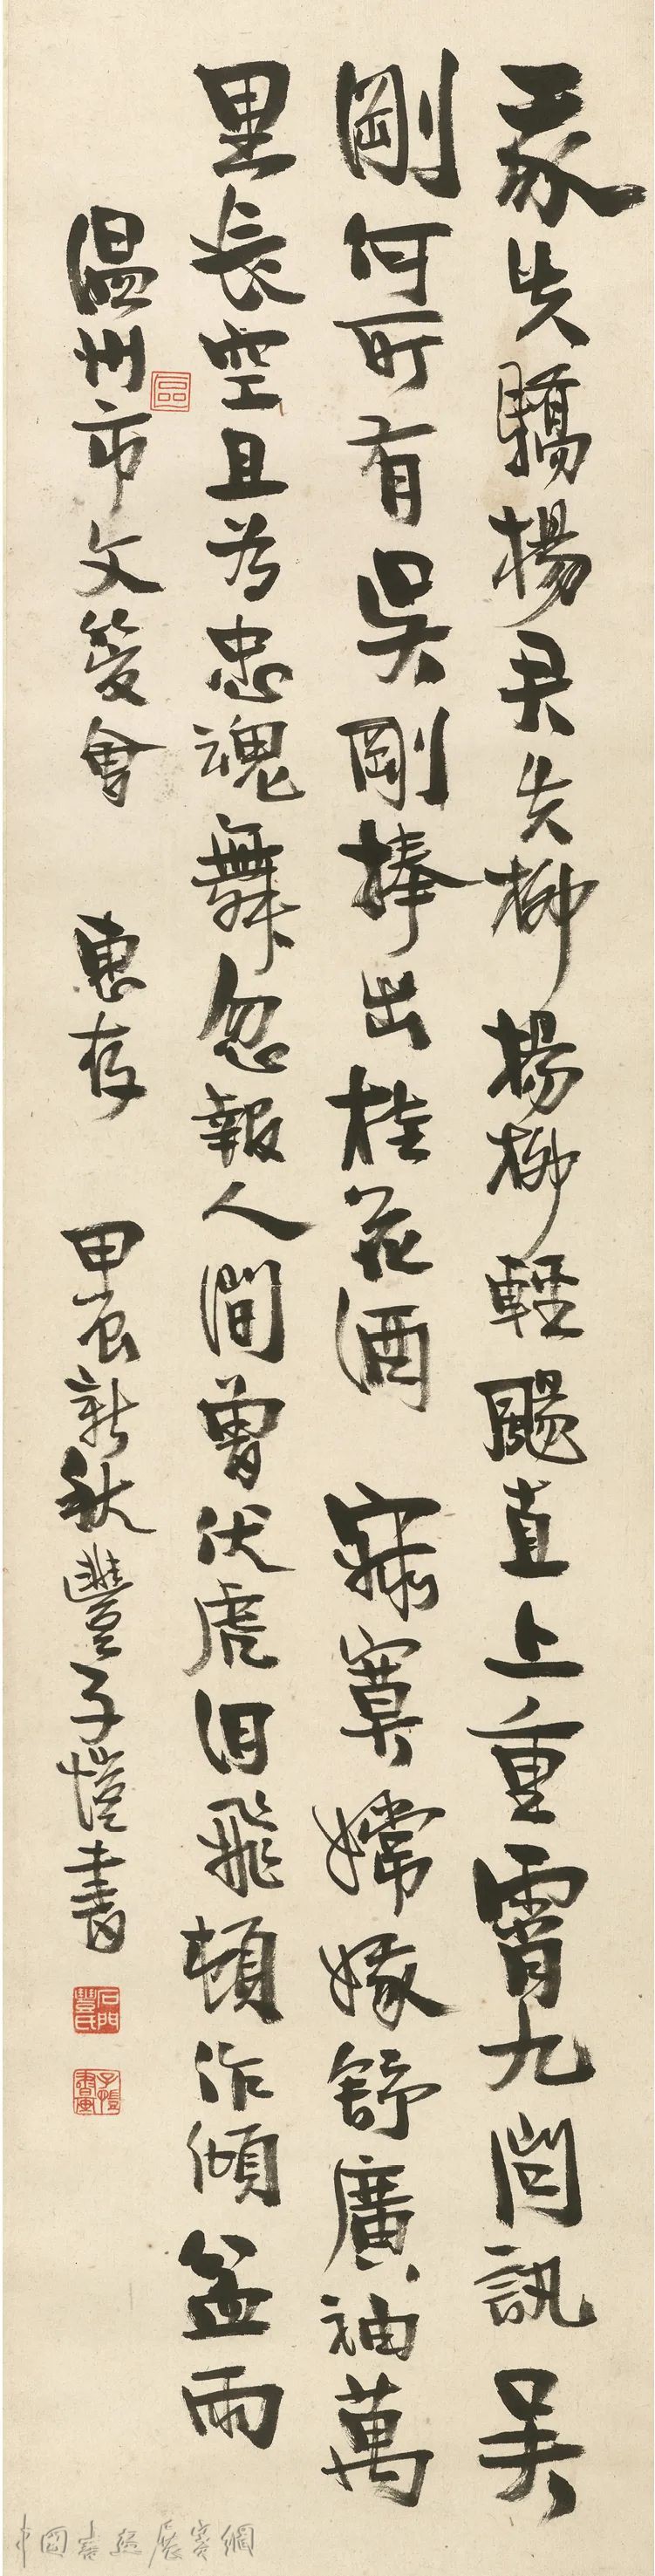 我失驕楊君失柳楊柳輕颺直上重霄九問訊吳
剛何所有吳剛捧出桂花酒 寂寞嫦娥舒廣袖萬
里長空且為忠魂舞忽報人間曾伏虎泪飛頓作傾盆雨
温州市文管會 惠存 甲寅新秋豐子愷書
石門豐氏
子愷書畫
中國書法展賽網